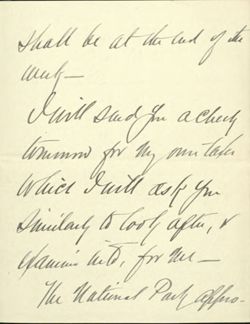 shall be at the end of the
week—
I will send you a check
tomorrow for my own taxes
which I will ask you
similarly to look after, &
examine into, for me—
The National Park appro-